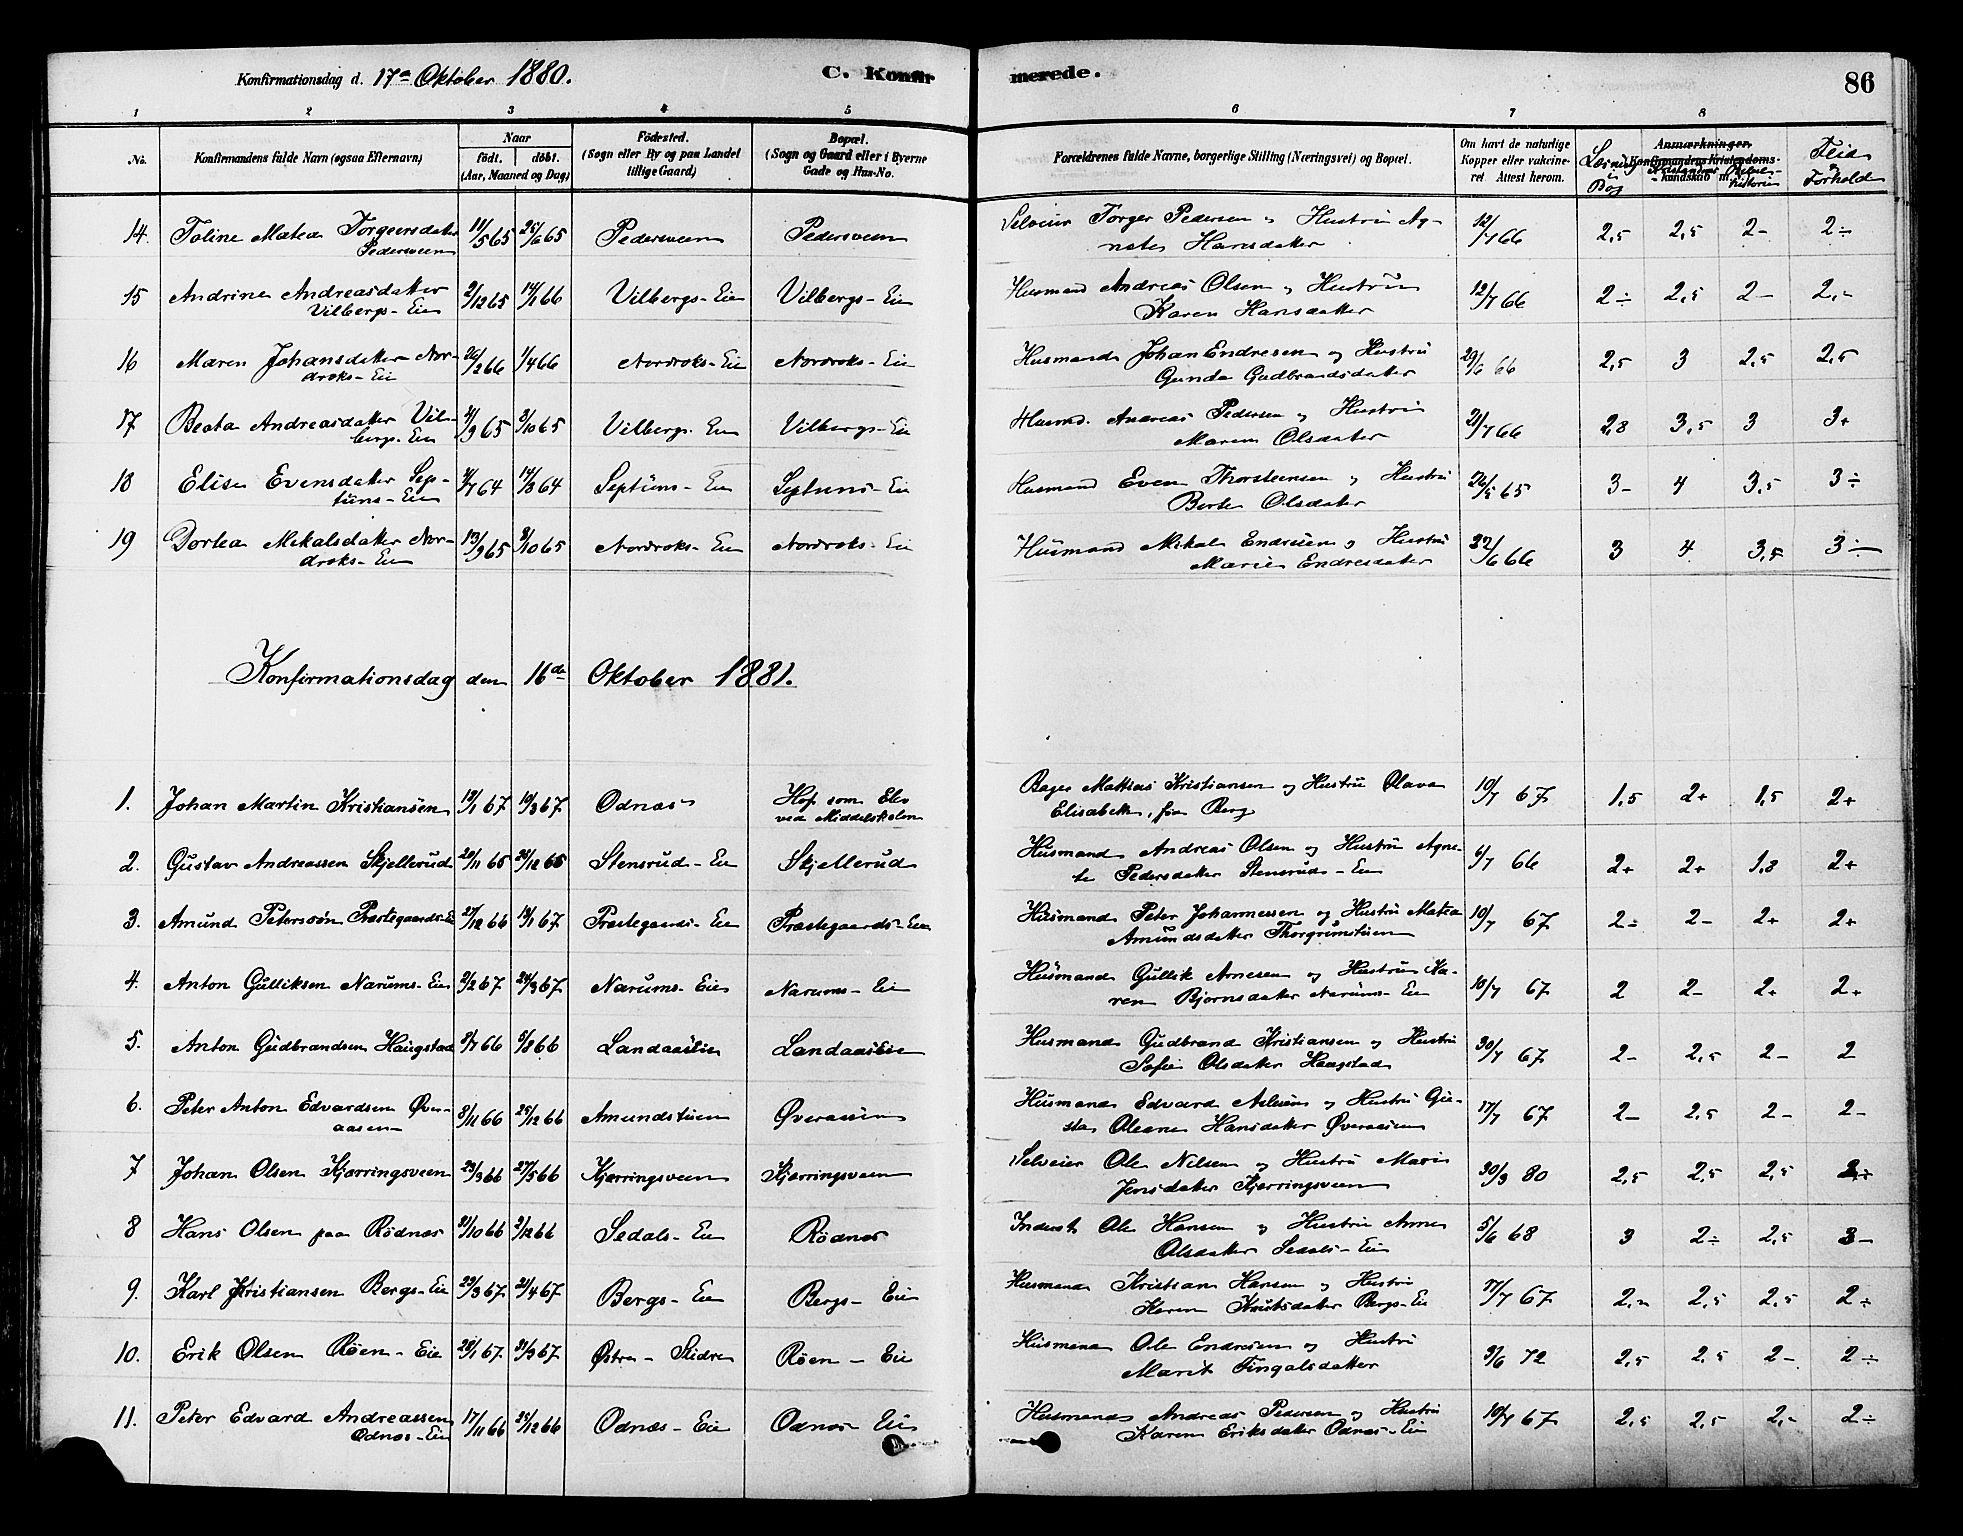 Konfirmationsdag d. 17de Oktober 1880. C. Konfirmerede. 86
1 2 3 4 5 6 7 8
No. Konfirmandens fulde Navn (ogsaa Efternavn) Naar født. døbt. (Aar, Maaned og Dag) Fødested. (Sogn eller By og paa Landet tillige Gaard) Bopæl. (Sogn og Gaard eller i Byerne Gade og Hus-No. Forældrenes fulde Navne, borgerlige Stilling (Næringsvei) og Bopæl. Om havt de naturlige Kopper eller vakcineret Attest herom. Anmærkninger. Konfirmandens Kristendomskundskab m. Læsning i Bog Flid Forhold
14. Toline Matea Torgersdatter 11/5 65 25/6 65 Pedersveen Pedersveen Selveier Torger Pedersen og Hustru Ag- 12/7 66 2,5 2,5 2- 2÷
Pedersveen nete Hansdatter
15 Andrine Andreasdatter 2/12 65 14/1 66 Vilbergs-Eie Vilbergs-Eie Husmand Andreas Olsen og Hustru 12/7 66 2÷ 2,5 2- 2,-
Vilbergs-Eie Karen Hansdatter
16 Maren Johansdatter Nor- 26/2 66 1/4 66 Nordroks-Eie Nordroks-Eie Husmand Johan Endresen og Hustru 29/6 66 2,5 3 2,5 2,5
droks-Eie Gunda Gudbrandsdatter
17 Beata Andreasdatter Vil- 4/9 65 8/10 65 Vilbergs-Eie Vilbergs-Eie Husmd. Andreas Pedersen og Hustru 21/7 66 2,8 3,5 3 3+
bergs-Eie Maren Olsdatter
18 Elise Evensdatter Sep- 4/7 64 14/8 64 Septuns-Eie Septuns-Eie Husmand Even Thorsteensen og Hustru 26/5 65 3- 4 3,5 3÷
tuns-Eie Berte Olsdatter
19 Dortea Mikalsdatter Nor- 13/9 65 8/10 65 Nordroks-Eie Nordroks-Eie Husmand Mikal Endresen og Hustru /6 66 3 4 3,5 3÷
droks-Eie Marie Endresdatter
Konfirmationsdag den 16de Oktober 1881.
1. Johan Martin Kristiansen 19/1 67 10/3 67 Odnæs Hof som Elev Bager Mathias Kristiansen og Hustru Olava 10/7 67 1,5 2+ 1,5 2+
ved Middelskolen Elisabeth, fra Berg
2. Gustav Andreassen Skjellerud 20/11 65 26/12 65 Stensrud-Eie Skjellerud Husmand Andreas Olsen og Hustru Agne- 6/7 66 2+ 2+ 1,8 2+
te Pedersdatter Stensruds-Eie
3. Amund Petersøn Præstegaards-Eie 27/12 66 13/1 67 Præstegaards-Eie Præstegaards-Eie Husmand Peter Johannessen og Hustru Matea 10/7 67 2÷ 2- 2+ 2+
Amundsdatter Thorgrimstuen
4. Anton Gulliksen Narums-Eie 2/2 67 24/3 67 Narums-Eie Narums-Eie Husmand Gullik Arnesen og Hustru Ka- 10/7 67 2 2- 2+ 2+
ren Bjørnsdatter Narums-Eie
5. Anton Gudbrandsen Haugstad 8/7 66 5/8 66 Landaaslien Landaaslien Husmand Gudbrand Kristiansen og Hustru 30/7 67 2- 2,5 2- 2
Sofie Olsdatter Haugstad
6. Peter Anton Edvardsen Øver- 8/11 66 25/12 66 Amundstuen Øveraasen Husmand Edvard og Hustru Gu- 17/7 67 2- 2,5 2- 2-
aasen sta Oleane Hansdatter Øveraasen
7 Johan Olsen Kjærringsveen 23/3 66 27/5 66 Kjærringsveen Kjærringsveen Selveier Ole Nilsen og Hustru Mari 30/3 80 2,5 2,5 2,5 2÷
Jensdatter Kjærringsveen
8 Hans Olsen paa Rødnæs 31/10 66 2/12 66 Sedals-Eie Rødnæs Inderst Ole Hansen og Hustru Anne 5/6 68 3 2÷ 2,5 3-
Olsdatter Sedals-Eie
9. Karl Kristiansen Bergs-Eie 23/3 67 21/4 67 Bergs-Eie Bergs-Eie Husmand Kristian Hansen og Hustru 17/7 67 2,- 2,5 2,5 2÷
Karen Knutsdatter Bergs-Eie
10. Erik Olsen Røen-Eie 28/1 67 31/3 67 Østre-Slidre Røen-Eie Husmand Ole Endresen og Hustru 3/6 72 2,5 2,5 2- 2÷
Marit Tingalsdatter
11. Peter Edvard Andreassen 17/11 66 25/12 66 Odnæs-Eie Odnæs-Eie Husmand Andreas Pedersen og Hustru 10/7 67 2,5 2,5 2,- 2÷
Odnæs-Eie Karen Eriksdatter Odnæs-Eie